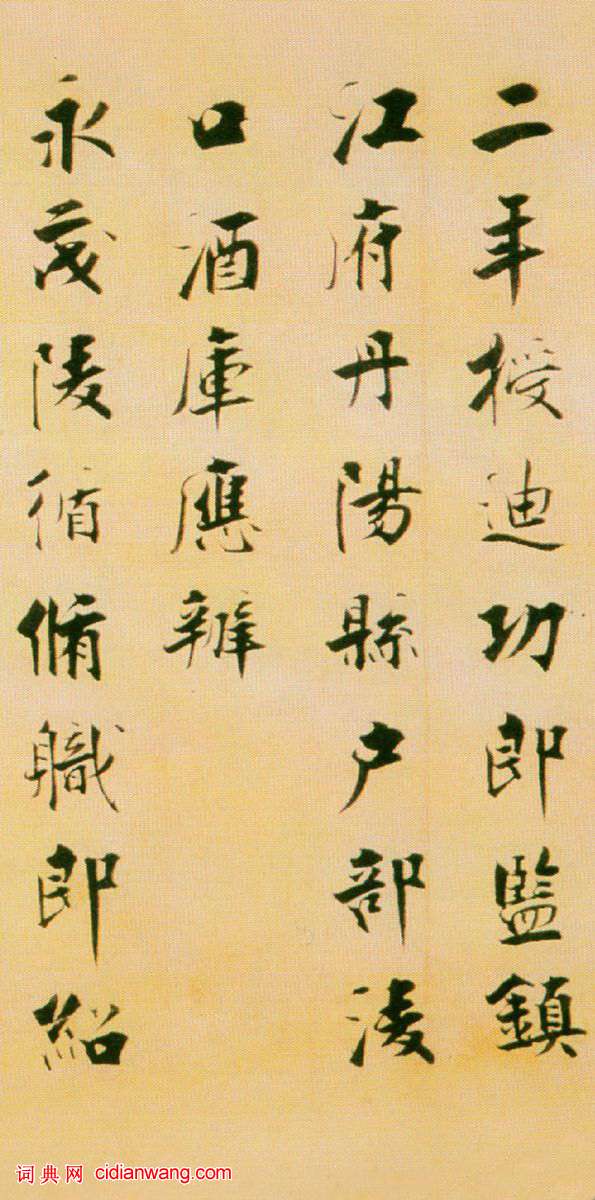 二年授迪功郎監鎮
江府丹陽縣户部淩
口酒庫應辦
永茂陵循脩職郎紹
词典网 cidianwang.com